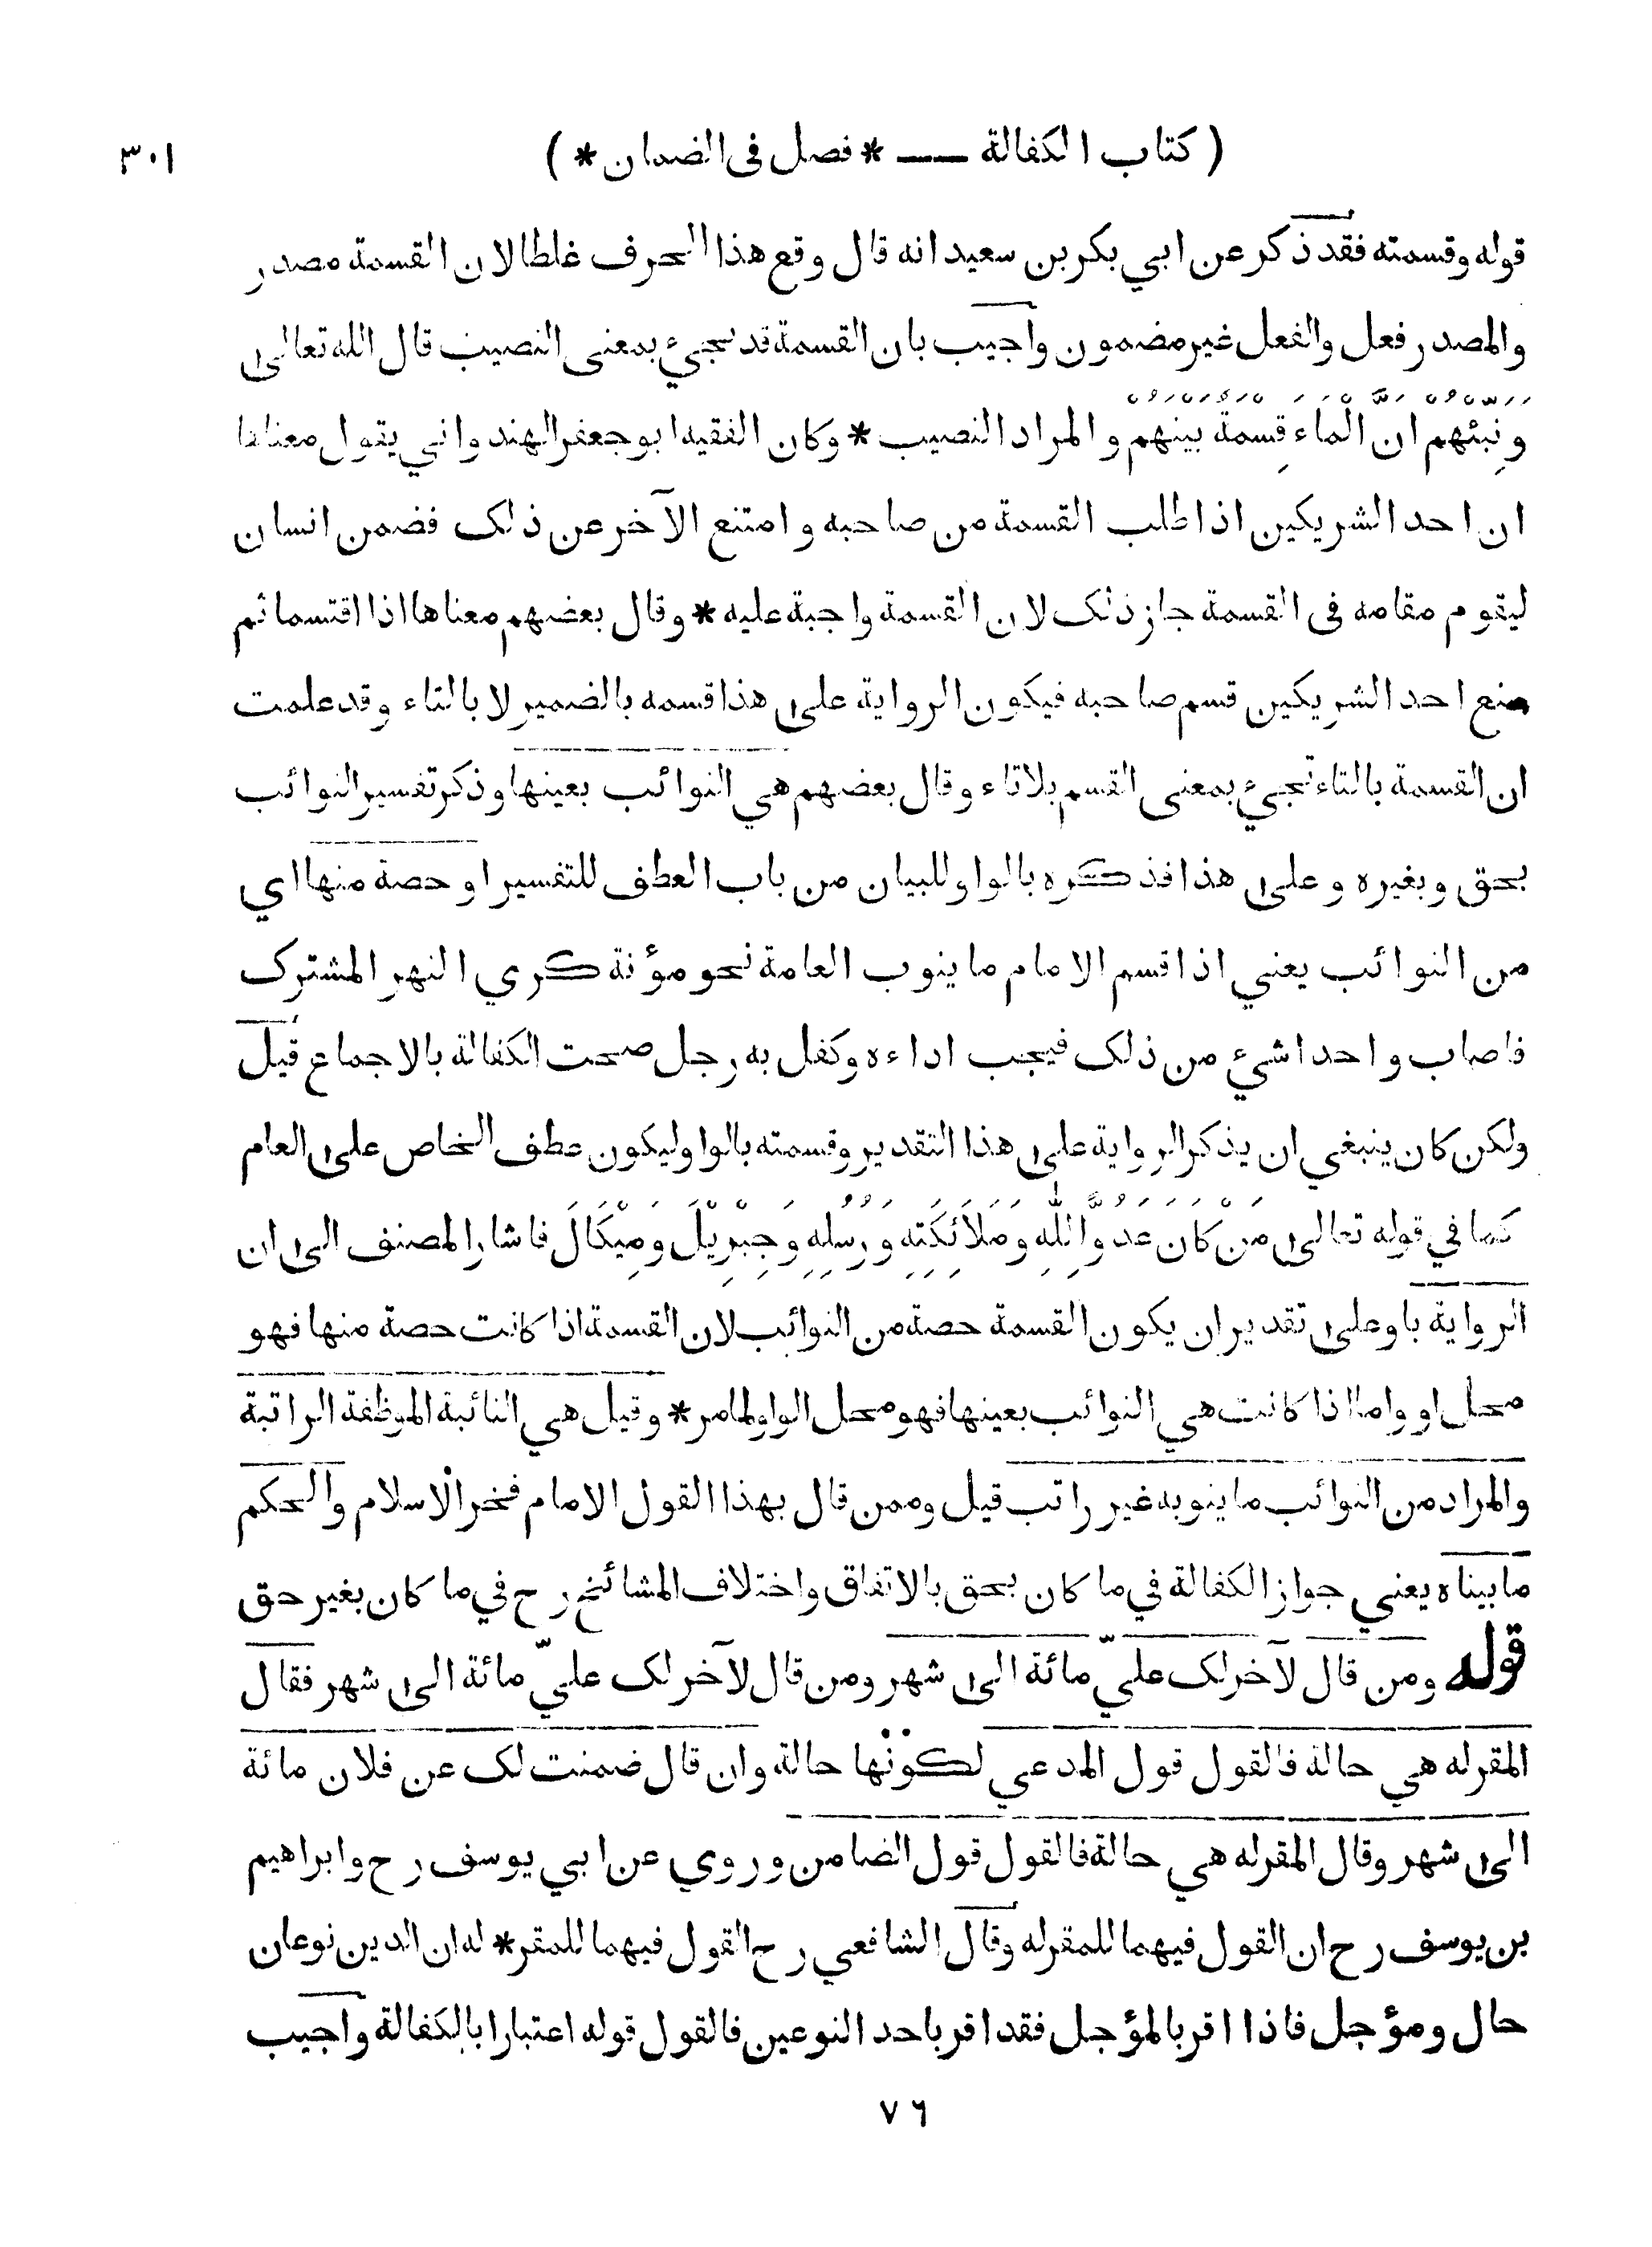 ( كتاب الكفالة — * فصل فى الضمان * ) ٣٠١
قوله وقسمته فقد ذكر عن ابي بكر بن سعيد انه قال وقع هذا الحرف غلطا لان القسمة مصدر
والمصدر فعل والفعل غير مضمون واجيب بان القسمة قد تجيء بمعنى النصيب قال الله تعالى
وَنَبِّئْهُمْ اَنَّ الْمَاءَ قِسْمَةٌ بَيْنَهُمْ والمراد النصيب * وكان الفقيه ابو جعفر الهندواني يقول معناها
ان احد الشريكين اذا طلب القسمة من صاحبه وامتنع الآخر عن ذلك فضمن انسان
ليقوم مقامه فى القسمة جاز ذلك لان القسمة واجبة عليه * وقال بعضهم معناها اذا اقتسما ثم
منع احد الشريكين قسم صاحبه فيكون الرواية على هذا قسمه بالضمير لا بالتاء وقد علمت
ان القسمة بالتاء تجيء بمعنى القسم بلا تاء وقال بعضهم هي النوائب بعينها وذكر تفسير النوائب
بحق وبغيره وعلى هذا فذكره بالواو للبيان من باب العطف للتفسير او حصة منها اي
من النوائب يعني اذا قسم الامام ما ينوب العامة نحو مؤنة كري النهر المشترك
فاصاب واحدا شيء من ذلك فيجب اداءه وكفل به رجل صحت الكفالة بالاجماع قيل
ولكن كان ينبغي ان يذكر الرواية على هذا التقدير وقسمته بالواو ليكون عطف الخاص على العام
كما في قوله تعالى مَنْ كَانَ عَدُوًّا لِلّٰهِ وَمَلَائِكَتِهِ وَرُسُلِهِ وَجِبْرِيْلَ وَمِيْكَالَ فاشار المصنف الى ان
الرواية باو على تقدير ان يكون القسمة حصة من النوائب لان القسمة اذا كانت حصة منها فهو
محل او واما اذا كانت هي النوائب بعينها فهو محل الواو لما مر * وقيل هي النائبة الموظفة الراتبة
والمراد من النوائب ما ينوبه غير راتب قيل وممن قال بهذا القول الامام فخر الاسلام والحكم
ما بيناه يعني جواز الكفالة في ما كان بحق بالاتفاق واختلاف المشائخ رح في ما كان بغير حق
قوله ومن قال لآخر لك عليّ مائة الى شهر ومن قال لآخر لك عليّ مائة الى شهر فقال
المقر له هي حالة فالقول قول المدعي لكونها حالة وان قال ضمنت لك عن فلان مائة
الى شهر وقال المقر له هي حالة فالقول قول الضامن وروي عن ابي يوسف رح وابراهيم
بن يوسف رح ان القول فيهما للمقر له وقال الشافعي رح القول فيهما للمقر * له ان الدين نوعان
حال ومؤجل فاذا اقر بالمؤجل فقد اقر باحد النوعين فالقول قوله اعتبارا بالكفالة واجيب
٧٦